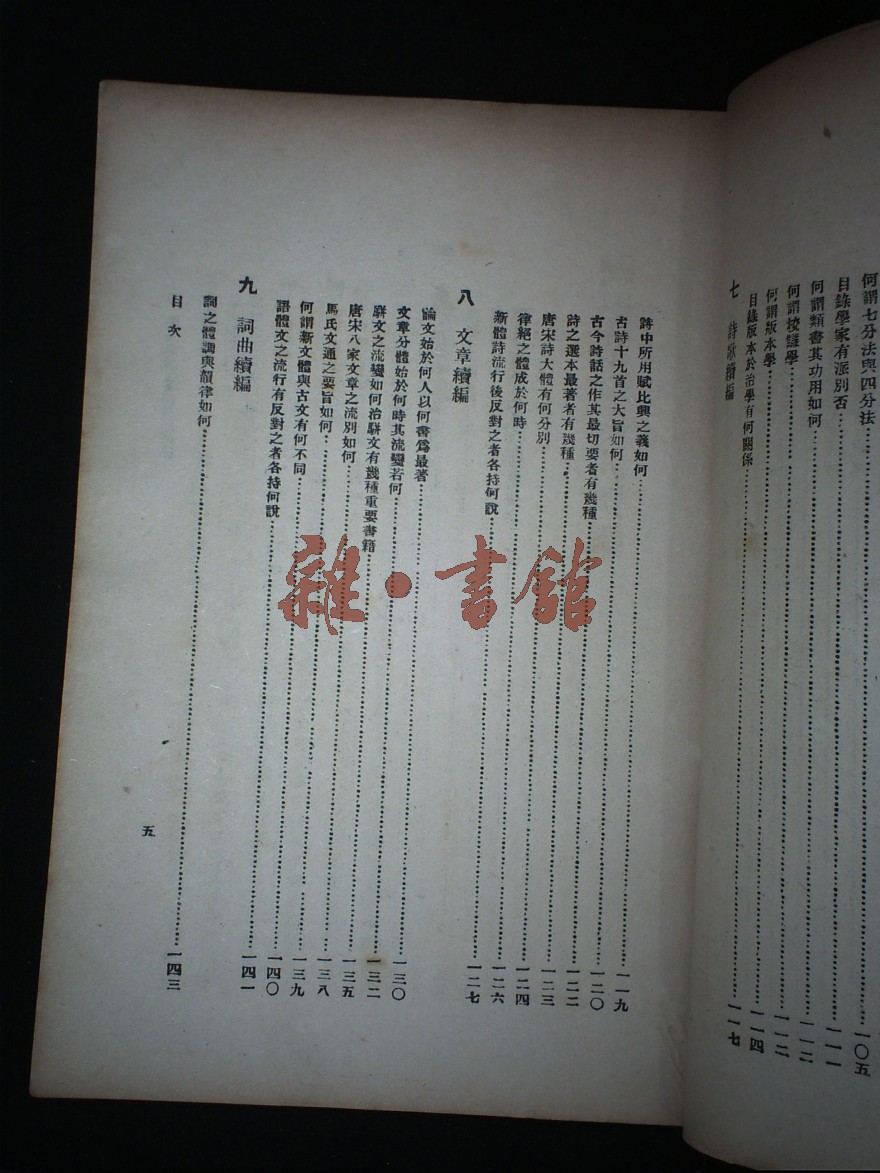 何謂七分法與四分法……一〇五
目錄學家有派別否……一一一
何謂類書其功用如何……一一二
何謂校讎學……一一二
何謂版本學……一一四
目錄版本於治學有何關係……一一七
七 詩歌續編
詩中所用賦比興之義如何……一一九
古詩十九首之大旨如何……一二〇
古今詩話之作其最切要者有幾種……一二二
詩之選本最著者有幾種……一二三
唐宋詩大體有何分別……一二四
律絕之體成於何時……一二六
新體詩流行後反對之者各持何說……一二七
八 文章續編
論文始於何人以何書爲最著……一三〇
文章分體始於何時其流變若何……一三二
駢文之流變如何治駢文有幾種重要書籍……一三五
唐宋八家文章之流別如何……一三八
馬氏文通之要旨如何……一三九
何謂新文體與古文有何不同……一四〇
語體文之流行有反對之者各持何說……一四一
九 詞曲續編
詞之體調與韻律如何……一四三
目次
五
雜·書館